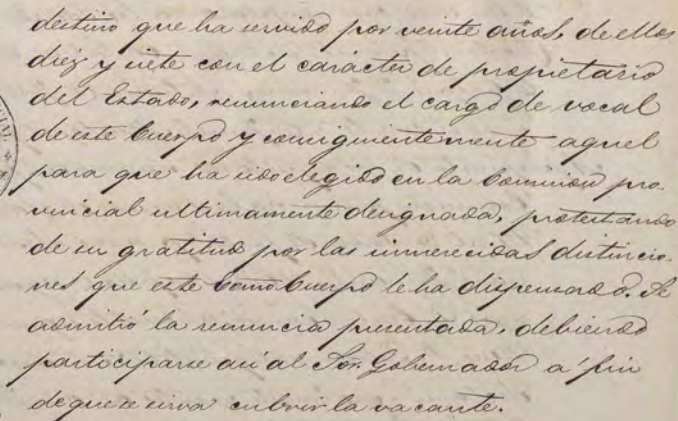 destino que ha servido por veinte años, de ellos
diez y siete con el carácter de propietario
del Estado, renunciando el cargo de vocal
de este Cuerpo y consiguientemente aquel
para que ha sido elegido en la Comision pro-
vincial ultimamente designada, protestando
de su gratitud por las inmerecidas distincio-
nes que este Cuerpo le ha dispensado. Se
admitió la renuncia presentada, debiendo
participarse asi al Sor. Gobernador a' fin
de que se sirva cubrir la vacante.